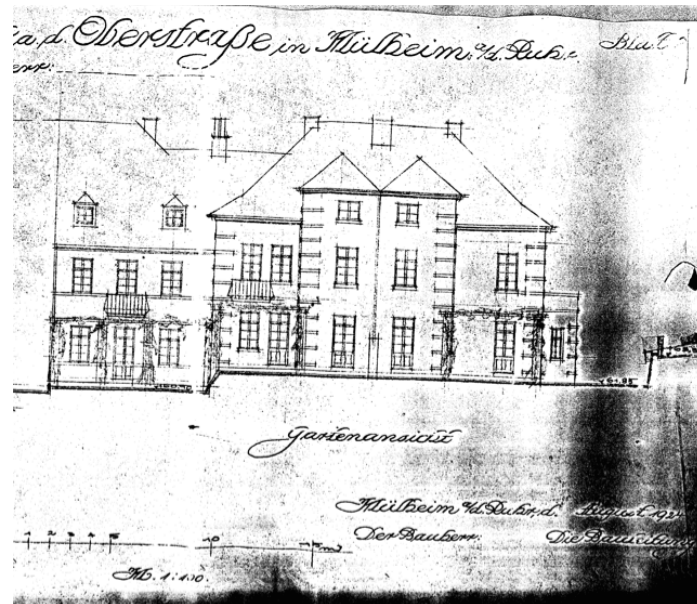 a.d. Oberstraße in Mülheim a/d. Ruhr. Blatt
err:
Gartenansicht
Mülheim a/d. Ruhr. d. August 192
Der Bauherr: Die Bauleitung
1 2 3 4 5 10
M. 1:100